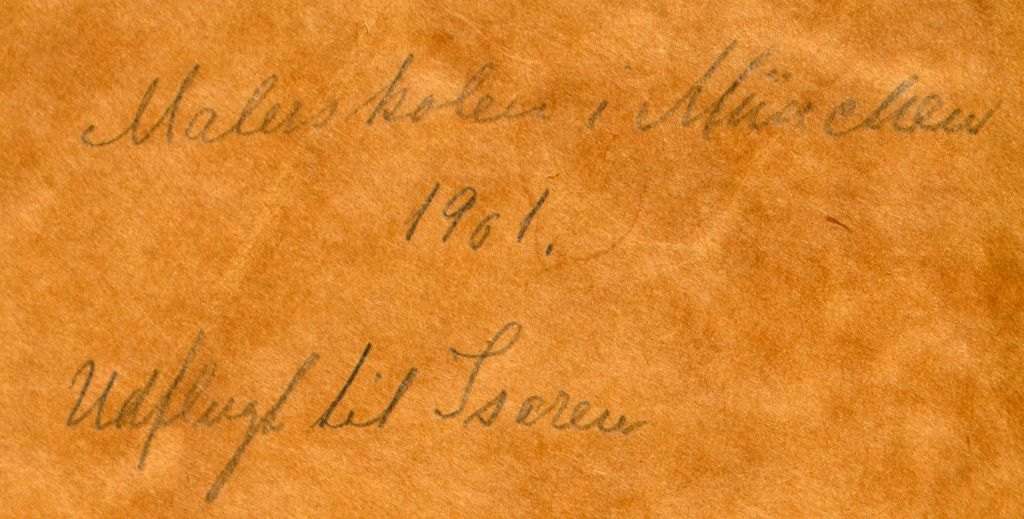 Malerskolen i München
1901.
Udflugt til Isaren